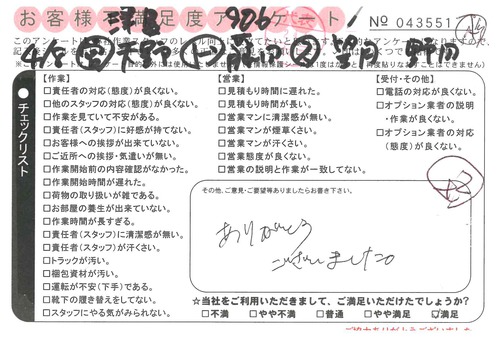 お客様満足度アンケート
No 043551
926
チェックリスト
【作業】
□責任者の対応(態度)が良くない。
□他のスタッフの対応(態度)が良くない。
□作業を見ていて不安がある。
□責任者(スタッフ)に好感が持てない。
□お客様への挨拶が出来ていない。
□ご近所への挨拶・気遣いが無い。
□作業開始前の内容確認がなかった。
□作業開始時間が遅れた。
□荷物の取り扱いが雑である。
□お部屋の養生が出来ていない。
□作業時間が長すぎる。
□責任者(スタッフ)に清潔感が無い。
□責任者(スタッフ)が汗くさい。
□トラックが汚い。
□梱包資材が汚い。
□運転が不安(下手)である。
□靴下の履き替えをしてない。
□スタッフにやる気がみられない。
【営業】
□見積もり時間に遅れた。
□見積もり時間が長い。
□営業マンに清潔感が無い。
□営業マンが煙草くさい。
□営業マンが汗くさい。
□営業態度が良くない。
□営業の説明と作業が一致してない。
【受付・その他】
□電話の対応が良くない。
□オプション業者の説明・作業が良くない。
□オプション業者の対応(態度)が良くない。
その他、ご意見・ご要望等ありましたらお書き下さい。
ありがとう
ございました。
☆当社をご利用いただきまして、ご満足いただけたでしょうか?
□不満 □やや不満 □普通 □やや満足 ☑満足
ご協力ありがとうございました